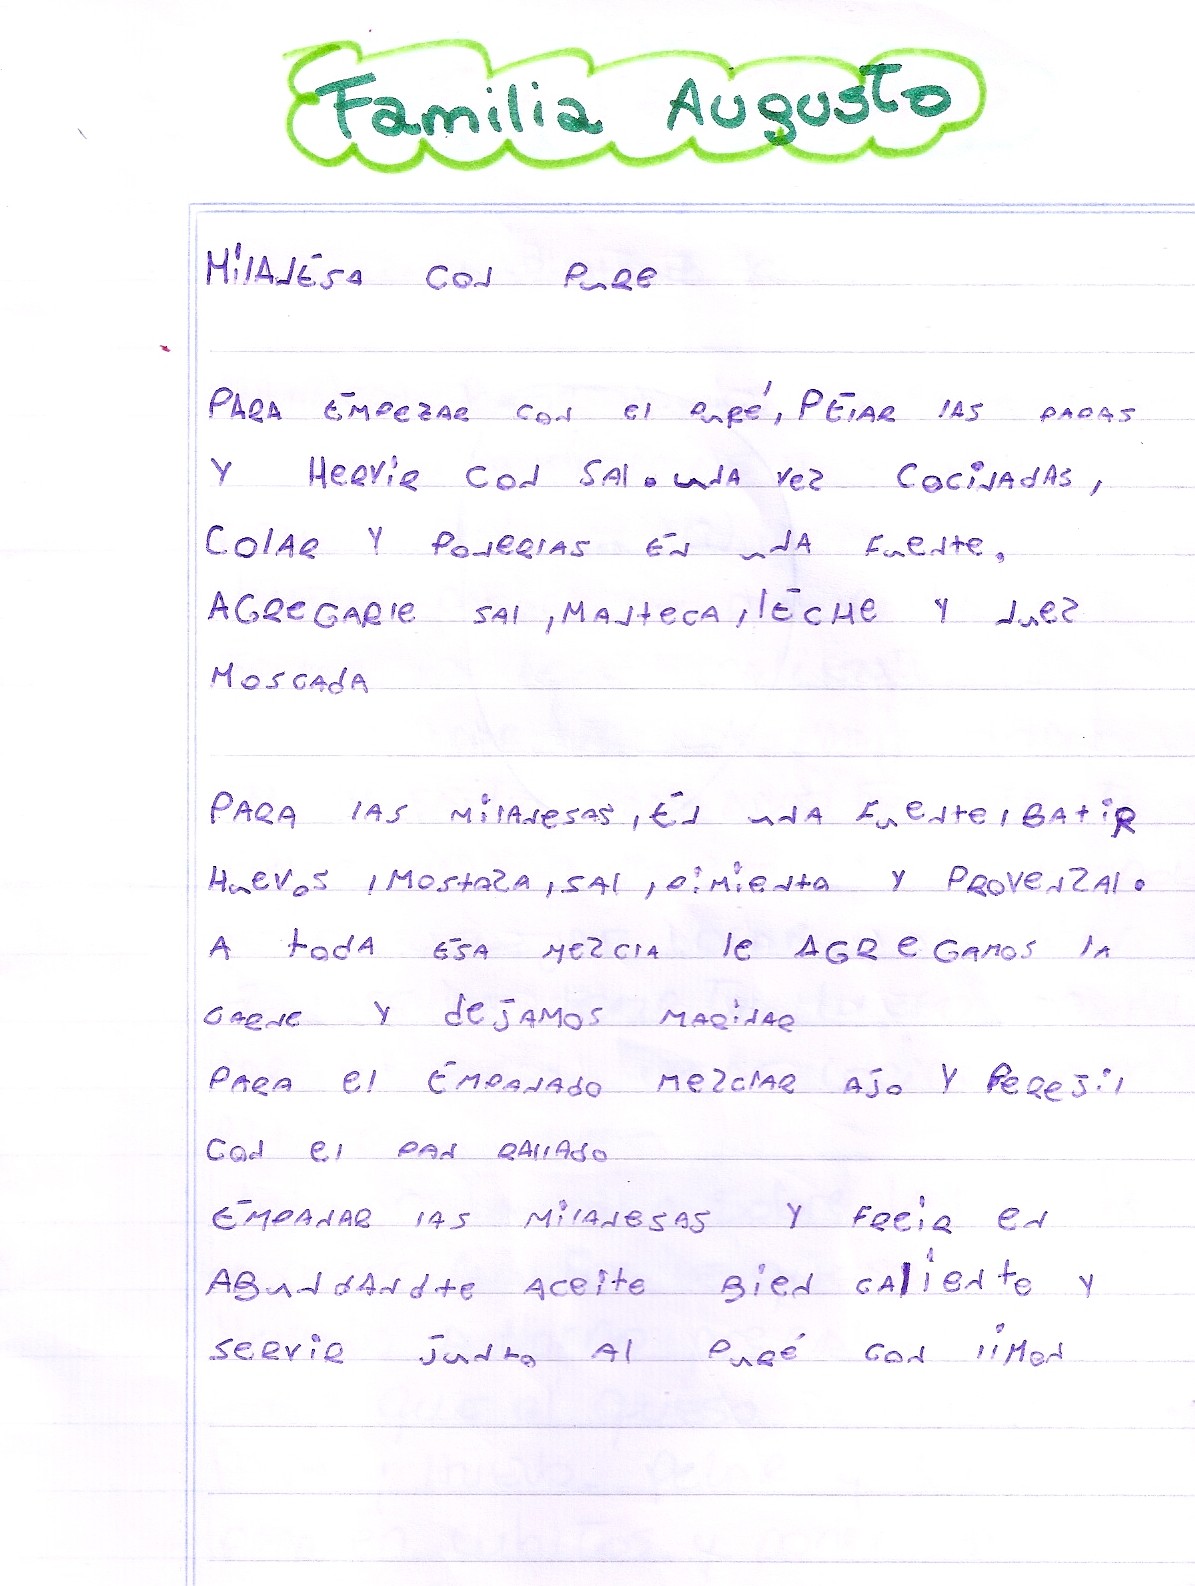 Familia Augusto
MilANESA CON PURE
PARA EMPEZAR CON El PURÉ, PELAR lAS PAPAS
Y HerviR CON SAl. UNA vez COCiNAdAS,
ColAR Y PONERlAS EN UNA Fuente.
AGReGARle SAl, MANteca, lECHe Y Nuez
MOSCAdA
PARA lAS MilANesAS, EN UNA Fuente, BAtiR
Huevos, MOStAZA, SAl, PiMieNtA Y PROVeNZAl.
A todA ESA MEZClA le AGReGAMOS lA
CARNe Y deJAMOS MARiNAR
PARA el EMPANAdo MezclAR AJo Y PeReJil
CON el PAN RAllAdo
EMPANAR lAS MilANeSAS Y FReiR eN
ABuNdANdte ACeite BieN CAlieNte Y
SeRviR JuNto Al PuRé CON liMoN